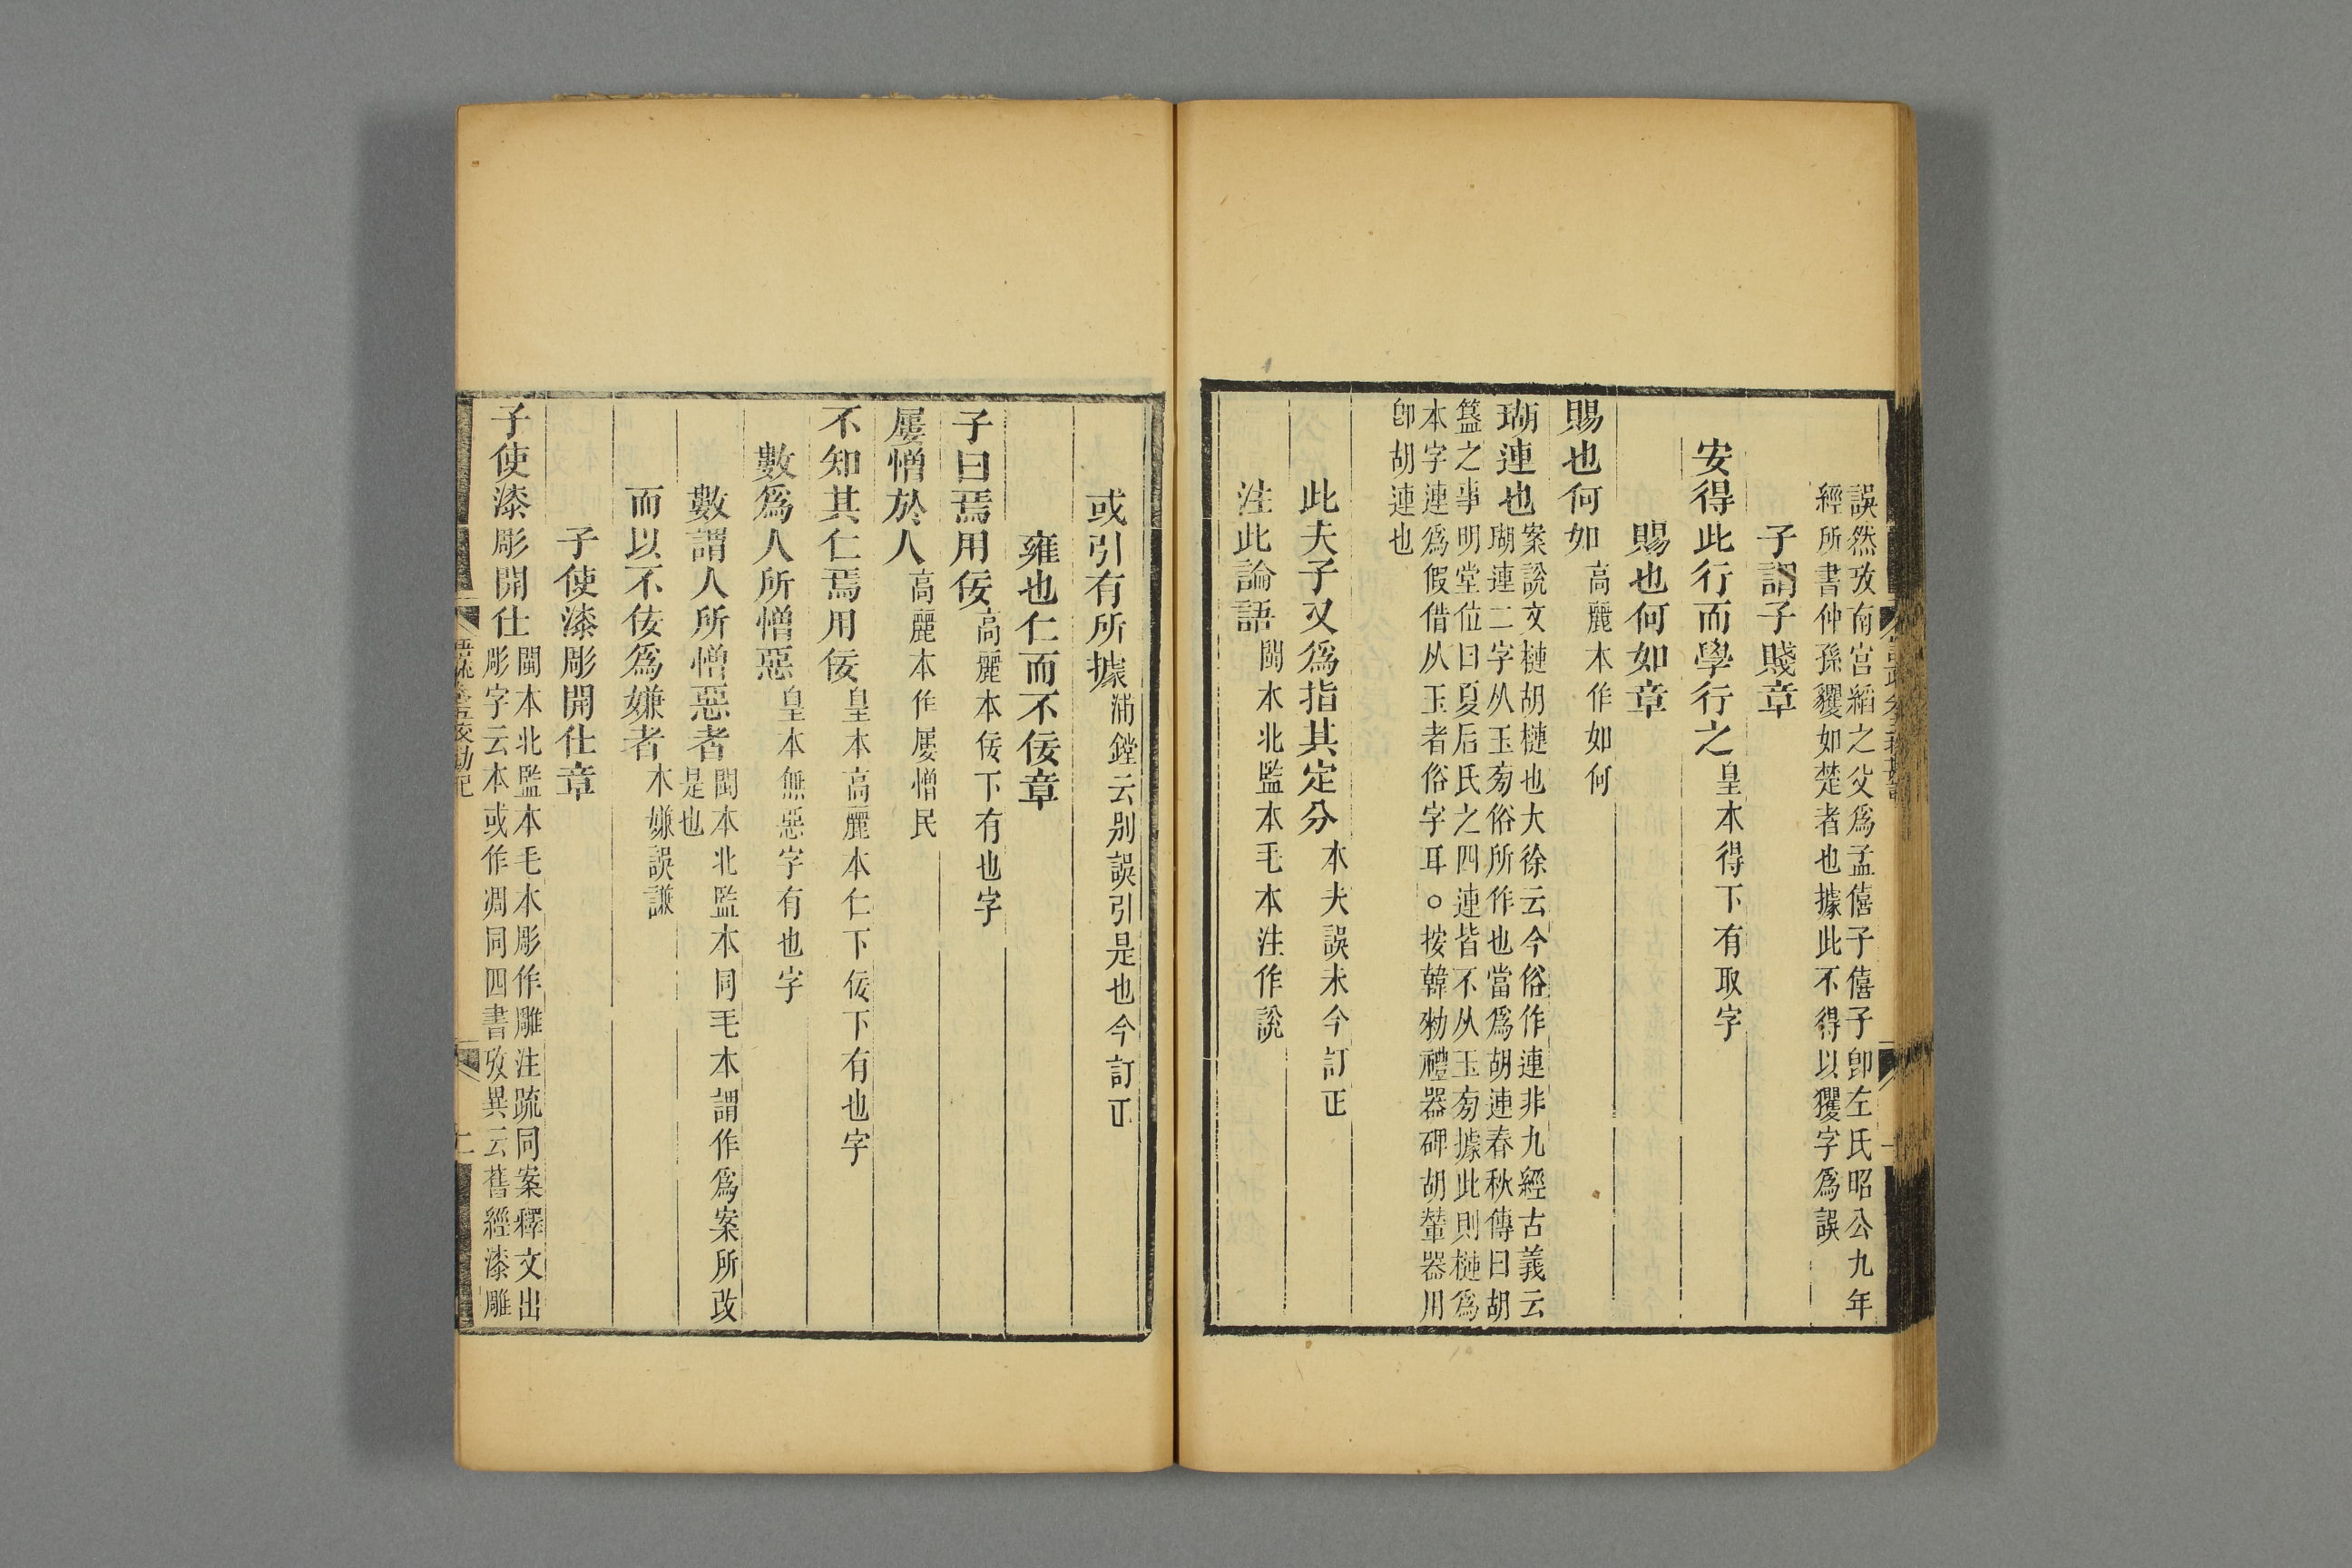 誤然攷南宮縚之父爲孟僖子僖子卽左氏昭公九年
經所書仲孫貜如楚者也據此不得以玃字爲誤
子謂子賤章
安得此行而學行之皇本得下有取字
賜也何如章
賜也何如高麗本作如何
瑚連也案說文槤胡槤也大徐云今俗作連非九經古義云
瑚連二字从玉旁俗所作也當爲胡連春秋傳曰胡
簋之事明堂位曰夏后氏之四連皆不从玉旁據此則槤爲
本字連爲假借从玉者俗字耳○按韓勑禮器碑胡輦器用
卽胡連也
此夫子又爲指其定分本夫誤未今訂正
注此論語閩本北監本毛本注作說
或引有所據浦鏜云别誤引是也今訂正
雍也仁而不佞章
子曰焉用佞高麗本佞下有也字
屢憎於人高麗本作屢憎民
不知其仁焉用佞皇本高麗本仁下佞下有也字
數爲人所憎惡皇本無惡字有也字
數謂人所憎惡者閩本北監本同毛本謂作爲案所改
是也
而以不佞爲嫌者本嫌誤謙
子使漆彫開仕章
子使漆彫開仕閩本北監本毛本彫作雕注疏同案釋文出
彫字云本或作凋同四書攷異云舊經漆雕